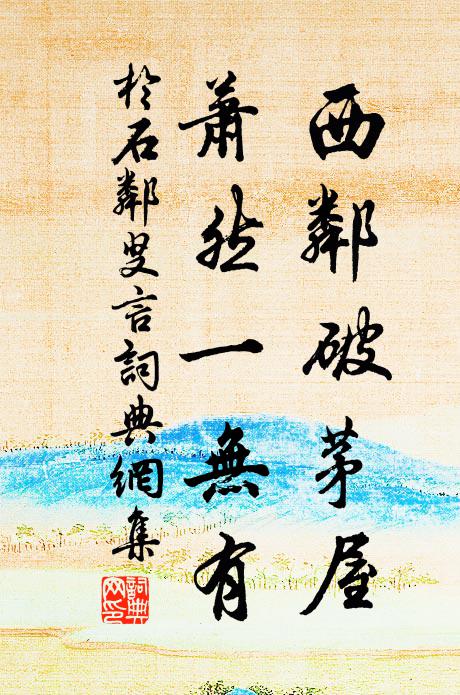 西鄰破茅屋
蕭然一無有
於石鄰叟言詞典網集